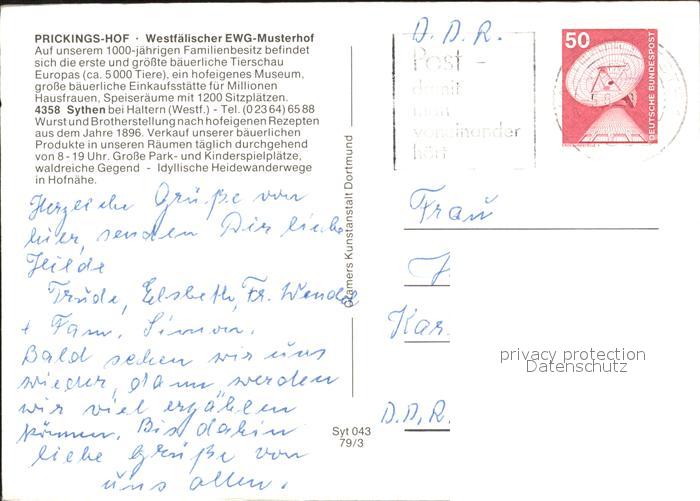 PRICKINGS-HOF · Westfälischer EWG-Musterhof
Auf unserem 1000-jährigen Familienbesitz befindet
sich die erste und größte bäuerliche Tierschau
Europas (ca. 5000 Tiere), ein hofeigenes Museum,
große bäuerliche Einkaufsstätte für Millionen
Hausfrauen, Speiseräume mit 1200 Sitzplätzen.
4358 Sythen bei Haltern (Westf.) - Tel. (02364) 6588
Wurst und Brotherstellung nach hofeigenen Rezepten
aus dem Jahre 1896. Verkauf unserer bäuerlichen
Produkte in unseren Räumen täglich durchgehend
von 8-19 Uhr. Große Park- und Kinderspielplätze,
waldreiche Gegend - Idyllische Heidewanderwege
in Hofnähe.
Herzliche Grüße von
hier, senden Dir liebe
Hilde
Trude, Elsbeth, Fr. Wendel
+ Fam. Simon.
Bald sehen wir uns
wieder, dann werden
wir viel erzählen
können. Bis dahin
liebe Grüße von
uns allen.
Cramers Kunstanstalt Dortmund
Syt 043
79/3
D.D.R.
Post -
damit
man
voneinander
hört
50
DEUTSCHE BUNDESPOST
Frau
Kar
D.D.R.
privacy protection
Datenschutz